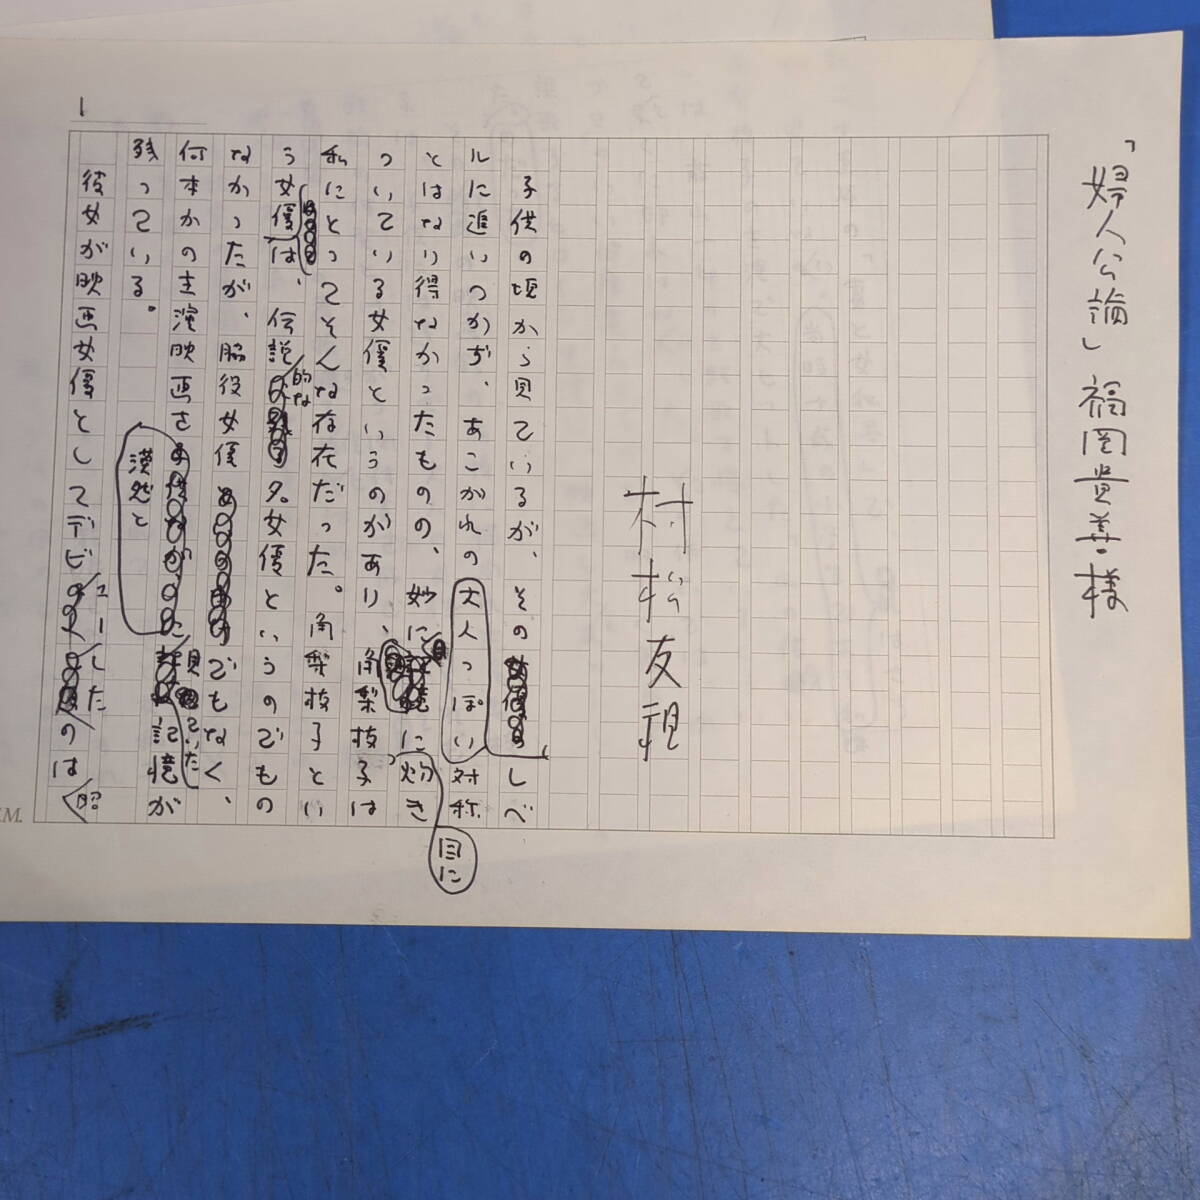 「婦人公論」福岡貴善様
村松友視
子供の頃から見ているが、そのしべ
ルに追いつかず、あこがれの大人っぽい対称
とはなり得なかったものの、妙に目に灼き
ついている女優というのがあり、角梨枝子は
私にとってそんな存在だった。角梨枝子とい
う女優は、伝説的な大女優というのでもの
なかったが、脇役女優でもなく、
何本かの主演映画さ
漠然と
記憶が
残っている。
彼女が映画女優としてデビューしたのは昭
1